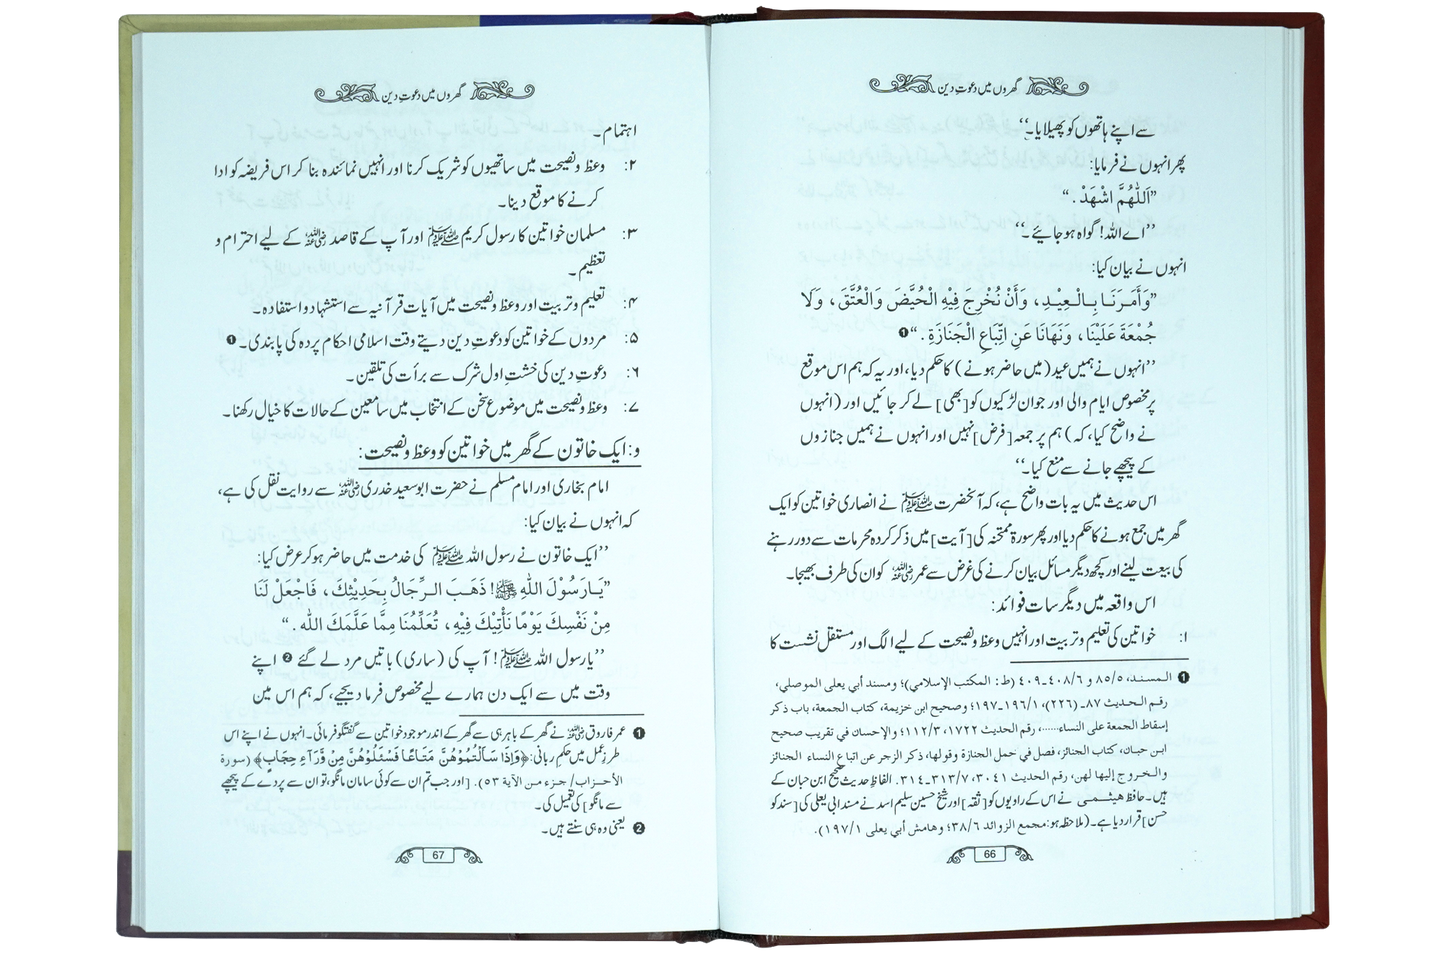 گھروں میں دعوتِ دین
سے اپنے ہاتھوں کو پھیلایا۔‘‘
پھر انہوں نے فرمایا:
”اَللّٰهُمَّ اشْهَدْ.“
’’اے اللہ! گواہ ہو جائیے۔‘‘
انہوں نے بیان کیا:
”وَأَمَرَنَا بِالْعِيْدِ، وَأَنْ نُخْرِجَ فِيْهِ الْحُيَّضَ وَالْعُتَّقَ، وَلَا
جُمْعَةَ عَلَيْنَا، وَنَهَانَا عَنِ اتِّبَاعِ الْجَنَازَةِ.“ ❶
’’انہوں نے ہمیں عید (میں حاضر ہونے) کا حکم دیا، اور یہ کہ ہم اس موقع
پر مخصوص ایام والی اور جوان لڑکیوں کو [بھی] لے کر جائیں اور (انہوں
نے واضح کیا، کہ) ہم پر جمعہ [فرض] نہیں اور انہوں نے ہمیں جنازوں
کے پیچھے جانے سے منع کیا۔‘‘
اس حدیث میں یہ بات واضح ہے، کہ آنحضرت ﷺ نے انصاری خواتین کو ایک
گھر میں جمع ہونے کا حکم دیا اور پھر سورۃ ممتحنہ کی [آیت] میں ذکر کردہ محرمات سے دور رہنے
کی بیعت لینے اور کچھ دیگر مسائل بیان کرنے کی غرض سے عمر رضی اللہ عنہ کو ان کی طرف بھیجا۔
اس واقعہ میں دیگر سات فوائد:
۱: خواتین کی تعلیم و تربیت اور انہیں وعظ و نصیحت کے لیے الگ اور مستقل نشست کا
❶ المسند، ٨٥/٥ و ٤٠٨/٦-٤٠٩ (ط: المكتب الإسلامي)؛ ومسند أبي يعلى الموصلي،
رقم الحديث ٨٧- (٢٢٦)، ١٩٦/١-١٩٧؛ وصحيح ابن خزيمة، كتاب الجمعة، باب ذكر
إسقاط الجمعة على النساء......، رقم الحديث ١٧٢٢، ١١٢/٣؛ والإحسان في تقريب صحيح
ابن حبان، كتاب الجنائز، فصل في حمل الجنازة وقولها، ذكر الزجر عن اتباع النساء الجنائز
والخروج إليها لهن، رقم الحديث ٣٠٤١، ٣١٣/٧-٣١٤. الفاظِ حدیث صحیح ابن حبان کے
ہیں۔ حافظ هيثمي نے اس کے راویوں کو [ثقہ] اور شیخ حسین سلیم اسد نے مسند ابی یعلی کی [سند کو
حسن] قرار دیا ہے۔ (ملاحظہ ہو: مجمع الزوائد ٣٨/٦؛ وهامش أبي يعلى ١٩٧/١).
66
گھروں میں دعوتِ دین
اہتمام۔
۲: وعظ و نصیحت میں ساتھیوں کو شریک کرنا اور انہیں نمائندہ بنا کر اس فریضہ کو ادا
کرنے کا موقع دینا۔
۳: مسلمان خواتین کا رسول کریم ﷺ اور آپ کے قاصد رضی اللہ عنہ کے لیے احترام و
تعظیم۔
۴: تعلیم و تربیت اور وعظ و نصیحت میں آیات قرآنیہ سے استشہاد و استفادہ۔
۵: مردوں کے خواتین کو دعوتِ دین دیتے وقت اسلامی احکام پردہ کی پابندی۔ ❶
۶: دعوتِ دین کی خشتِ اول شرک سے برأت کی تلقین۔
۷: وعظ و نصیحت میں موضوع سخن کے انتخاب میں سامعین کے حالات کا خیال رکھنا۔
و: ایک خاتون کے گھر میں خواتین کو وعظ و نصیحت:
امام بخاری اور امام مسلم نے حضرت ابو سعید خدری رضی اللہ عنہ سے روایت نقل کی ہے،
کہ انہوں نے بیان کیا:
’’ایک خاتون نے رسول اللہ ﷺ کی خدمت میں حاضر ہو کر عرض کیا:
”يَارَسُوْلَ اللّٰهِ ﷺ! ذَهَبَ الرِّجَالُ بِحَدِيْثِكَ، فَاجْعَلْ لَنَا
مِنْ نَفْسِكَ يَوْمًا نَأْتِيْكَ فِيْهِ، تُعَلِّمُنَا مِمَّا عَلَّمَكَ اللّٰه.“
’’یا رسول اللہ ﷺ! آپ کی (ساری) باتیں مرد لے گئے ❷ اپنے
وقت میں سے ایک دن ہمارے لیے مخصوص فرما دیجیے، کہ ہم اس میں
❶ عمر فاروق رضی اللہ عنہ نے گھر کے باہر ہی سے گھر کے اندر موجود خواتین سے گفتگو فرمائی۔ انہوں نے اپنے اس
طرزِ عمل میں حکمِ ربانی: ﴿وَإِذَا سَأَلْتُمُوْهُنَّ مَتَاعًا فَسْـَٔلُوْهُنَّ مِنْ وَّرَآءِ حِجَابٍ﴾ (سورة
الأحزاب/ جزء من الآية ٥٣). [اور جب تم ان سے کوئی سامان مانگو، تو ان سے پردے کے پیچھے
سے مانگو] کی تعمیل کی۔
❷ یعنی وہ ہی سنتے ہیں۔
67